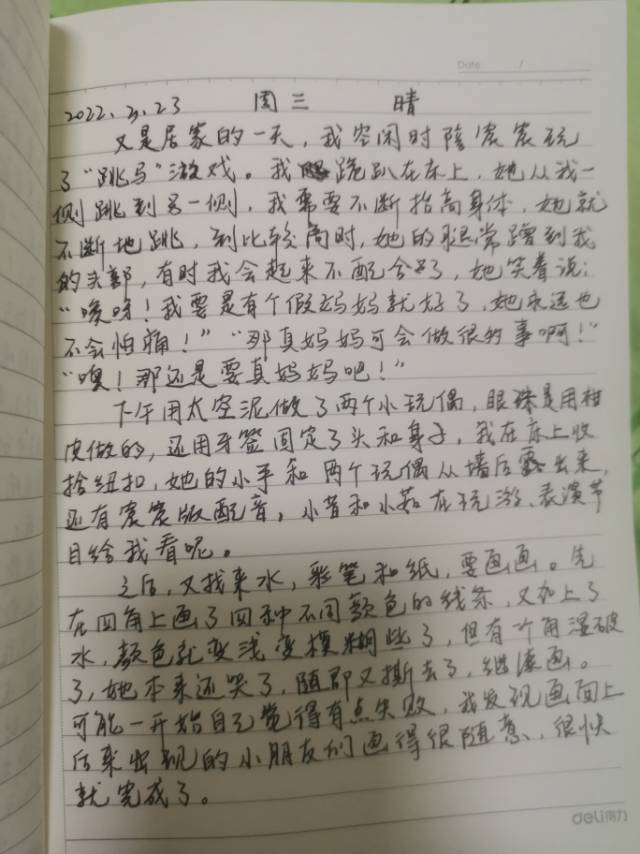 Date /
2022.3.23 周三 晴
又是居家的一天,我空闲时陪宸宸玩
了“跳马”游戏。我跪趴在床上,她从我一
侧跳到另一侧,我需要不断抬高身体,她就
不断地跳,到比较高时,她的腿常蹭到我
的头部,有时我会起来不配合了,她笑着说:
“哎呀!我要是有个假妈妈就好了,她永远也
不会怕痛!”“那真妈妈可会做很多事啊!”
“噢!那还是要真妈妈吧!”
下午用太空泥做了两个小玩偶,眼珠是用橡
皮做的,还用牙签固定了头和身子,我在床上收
拾纽扣,她的小手和两个玩偶从墙后露出来,
还有宸宸版配音,小昔和小茹在玩游、表演节
目给我看呢。
之后,又找来水,彩笔和纸,要画画。先
在四角上画了四种不同颜色的线条,又加上了
水,颜色就变浅变模糊些了,但有个角湿破
了,她本来还哭了,随即又撕去了,继续画。
可能一开始自己觉得有点失败,我发现画面上
后来出现的小朋友们画得很随意,很快
就完成了。
deli得力